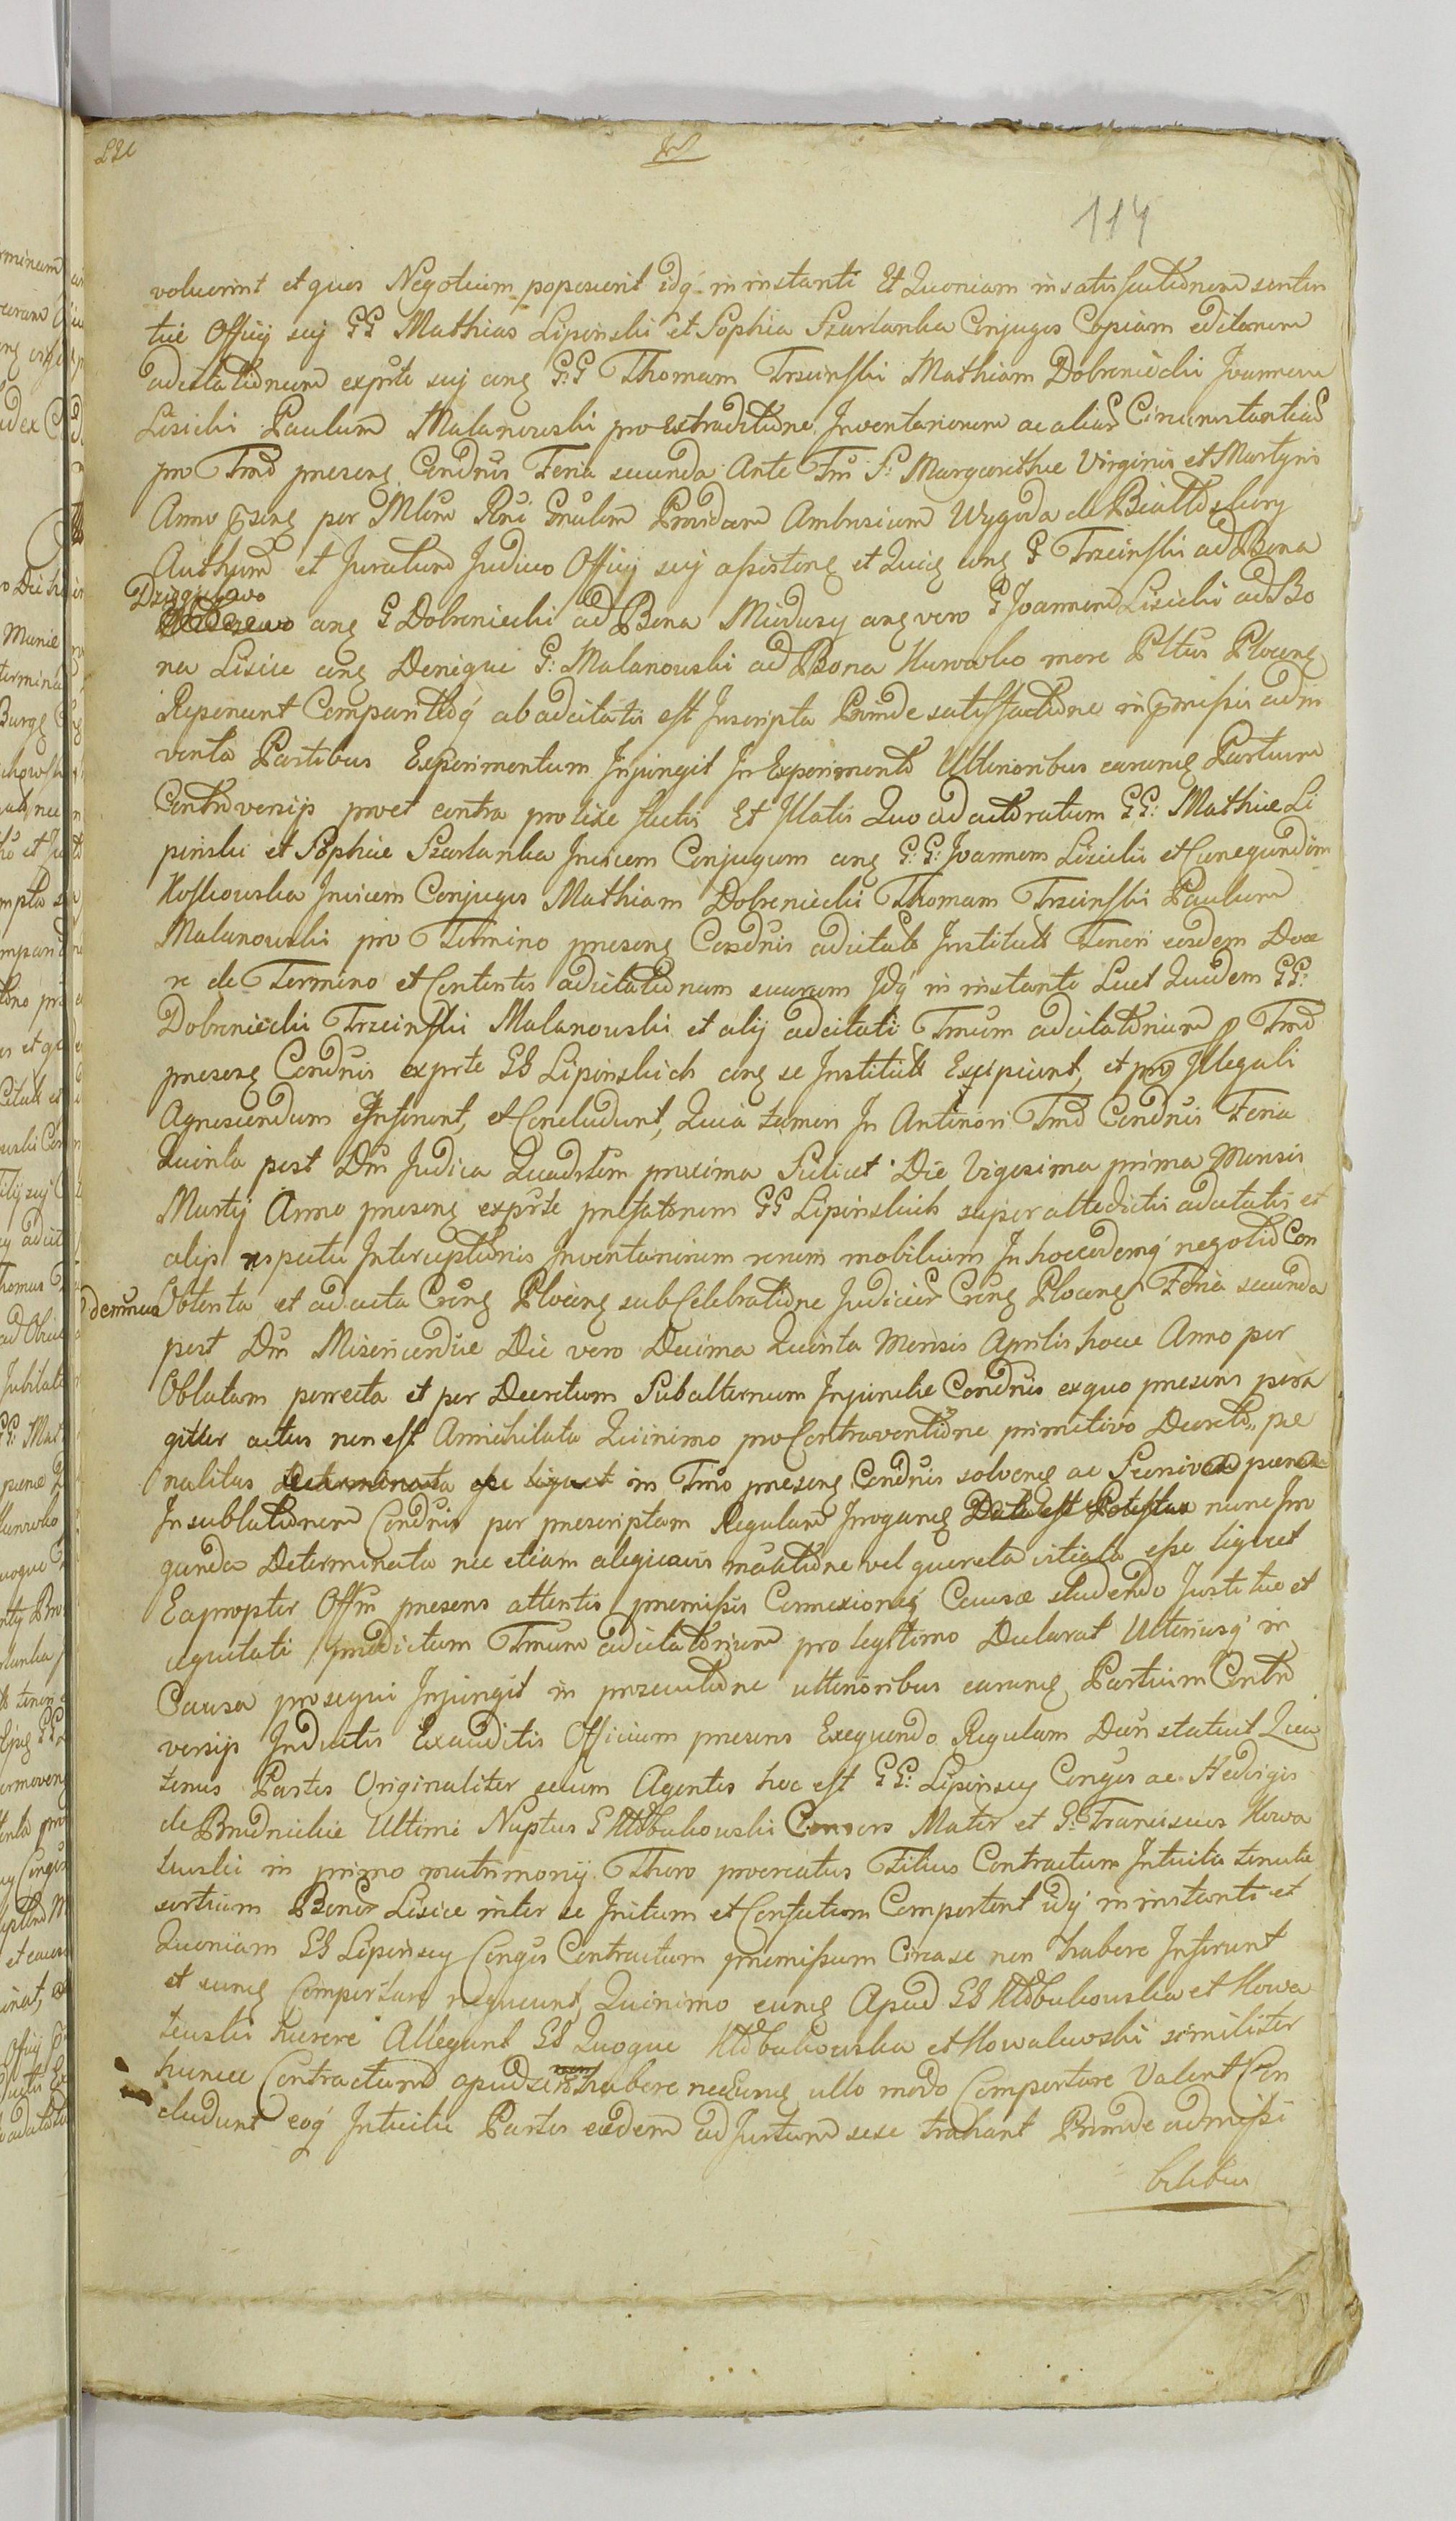 114
voluerint et quos Negotium poposcerit idq in instanti Et Quoniam in satisfactionem senten
tiae Officij sui GG Mathias Lipinski et Sophia Szarlanka Conjuges Copiam editarum
adcitationum exprte sui cong G:G Thomam Trzcinski Mathiam Dobrzniecki Joannem
Lisicki Paulum Malanowski pro Extraditione Inventariorum ac alias Circumstantias
pro Tmo praesenq Condnis Feria secunda Ante Fm S: Margarithae Virginis et Martyris
Anno psenq per Mlem Rni Gnalem Providum Ambrosium Wygoda de
Authum et Juratum Judico Officij sui assistenq et Quiq conq G Trzcinski ad Bona
conq G Dobrzniecki ad Bona Miduszy conq vero G Joannem Lisicki ad Bo
na Lisice conq Denique G: Malanowski ad Bona Kurowko more Pltus Plocenq
Reponunt Comparitioq ab adcitatis est Inscripta Proinde satisfactione in pmissis adin
venta Partibus Experimentum Injungit In Experimento Ulterioribus earumq Partium
Controversijs prout contra prolixe factis Et Illatis Quo ad actoratum GG: Mathiae Li
pinski et Sophiae Szarlanka Invicem Conjugum conq G:G: Joannem Lisicki et Cunegundim
Koskowska Invicem Conjuges Mathiam Dobrzniecki Thomam Trzcinski Paulum
Malanowski pro Termino praesenq Condnis adcitato Instituto Teneri eosdem Doce
re de Termino et Contentis adcitationum suarum Idq in instanti Licet Quidem GG:
Dobrzniecki Trzcinski Malanowski et alij adcitati Tmum adcitatorium p Tmo
praesenq Condnis exprte GG Lipinskich conq se Instituto Excipiunt, et pro Illegali
Agnoscendum Inferunt, et Concludunt, Quia tamen In Antiriori Tmo Condnis Feria
Quinta post Dm Judica Quadrlem proxima Scilicet Die Vigesima prima Mensis
Martij Anno praesenq exprte praefatorum GG Lipinskich super altedictis adcitatis et
alijs respectu Interceptionis Inventariorum rerum mobilium In hoccademq negotio Con
demnas Obtenta et ad acta Crenq Plocenq sub Celebratione Judicior Crenq Plocenq Feria secunda
post Dm Misericordiae Die vero Decima Quinta Mensis Aprilis hocce Anno per
Oblatam porrecta et per Decretum Subalternum Injunctae Condnis ex quo praesens pera
gitur actus non est Annihilata Quinimo pro Contraventione primitivo Decreto pae
nalitas in Tmo praesenq Condnis solvenq ac
In sublationem Condnis per praescriptam Regulam Irroganq nunc Irro
ganda Determinata nec etiam aliquavis motione vel querela vitiata esse liquet
Eapropter Offm praesens attentis praemissis Connexionq Causae studendo Justitiae et
aequitati praedictum Tmum adcitatorium pro legitimo Declarat Ulteriusq in
Causa prosequi Injungit in prosecutione ulterioribus earumq Partium Contro
versijs Inductis Exauditis Officium praesens Exequendo Regulam Dum statuit Qua
tenus Partes Originaliter secum Agentes hoc est GG: Lipinscy Conges ac Hedvigis
de Brudnickie Ultimi Nuptus G Klobukowski Consors Mater et G: Franciscus Kowa
lewski in primo matrimonij Thoro procreatus Filius Contractum Intuitu tenutae
sortium Bonor Lisice inter se Initum et Confectum Comportent idq in instanti et
Quoniam GG Lipinscy Conges Contractum praemissum Circa se non habere Inferunt
et eunq Comportare nequeunt, Quinimo eunq Apud GG Klobukowska et Kowa
lewski haerere Allegant GG Quoque Klobukowska et Kowalewski similiter
huncce Contractum apud se non habere nec Eunq ullo modo Comportare Valent Con
cludunt eoq Intuitu Partes eaedem ad Jurtum sese trahant Proinde admissi
bilibus